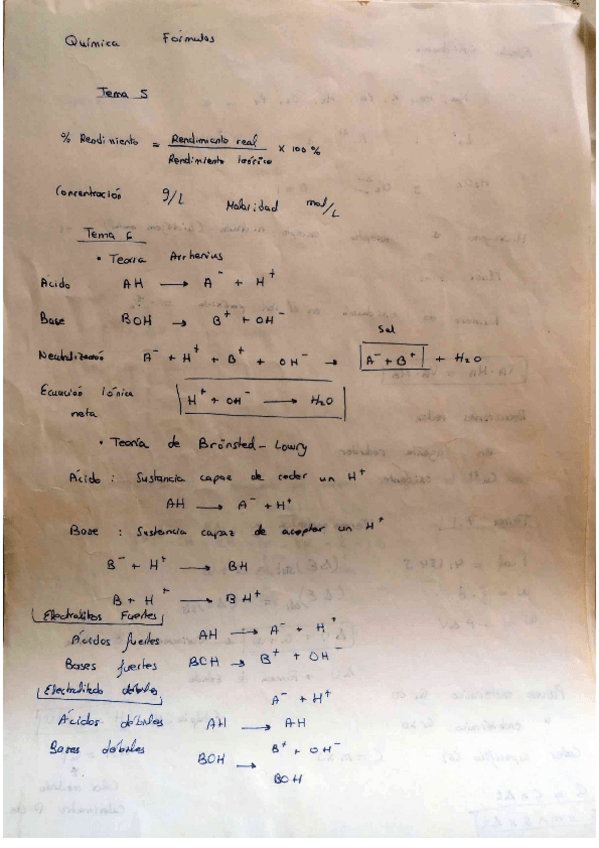 Química Fórmulas
Tema 5
% Rendimiento = Rendimiento real / Rendimiento teórico × 100 %
Concentración g/L Molaridad mol/L
Tema 6
• Teoría Arrhenius
Ácido AH → A⁻ + H⁺
Base BOH → B⁺ + OH⁻
Sal
Neutralización A⁻ + H⁺ + B⁺ + OH⁻ → A⁻ + B⁺ + H₂O
Ecuación iónica neta H⁺ + OH⁻ → H₂O
• Teoría de Brönsted-Lowry
Ácido : Sustancia capaz de ceder un H⁺
AH → A⁻ + H⁺
Base : Sustancia capaz de aceptar un H⁺
B⁻ + H⁺ → BH
B + H⁺ → BH⁺
Electrolitos Fuertes
Ácidos fuertes AH → A⁻ + H⁺
Bases fuertes BOH → B⁺ + OH⁻
Electrolitos débiles
A⁻ + H⁺
Ácidos débiles AH → AH
Bases débiles B⁺ + OH⁻
BOH →
BOH